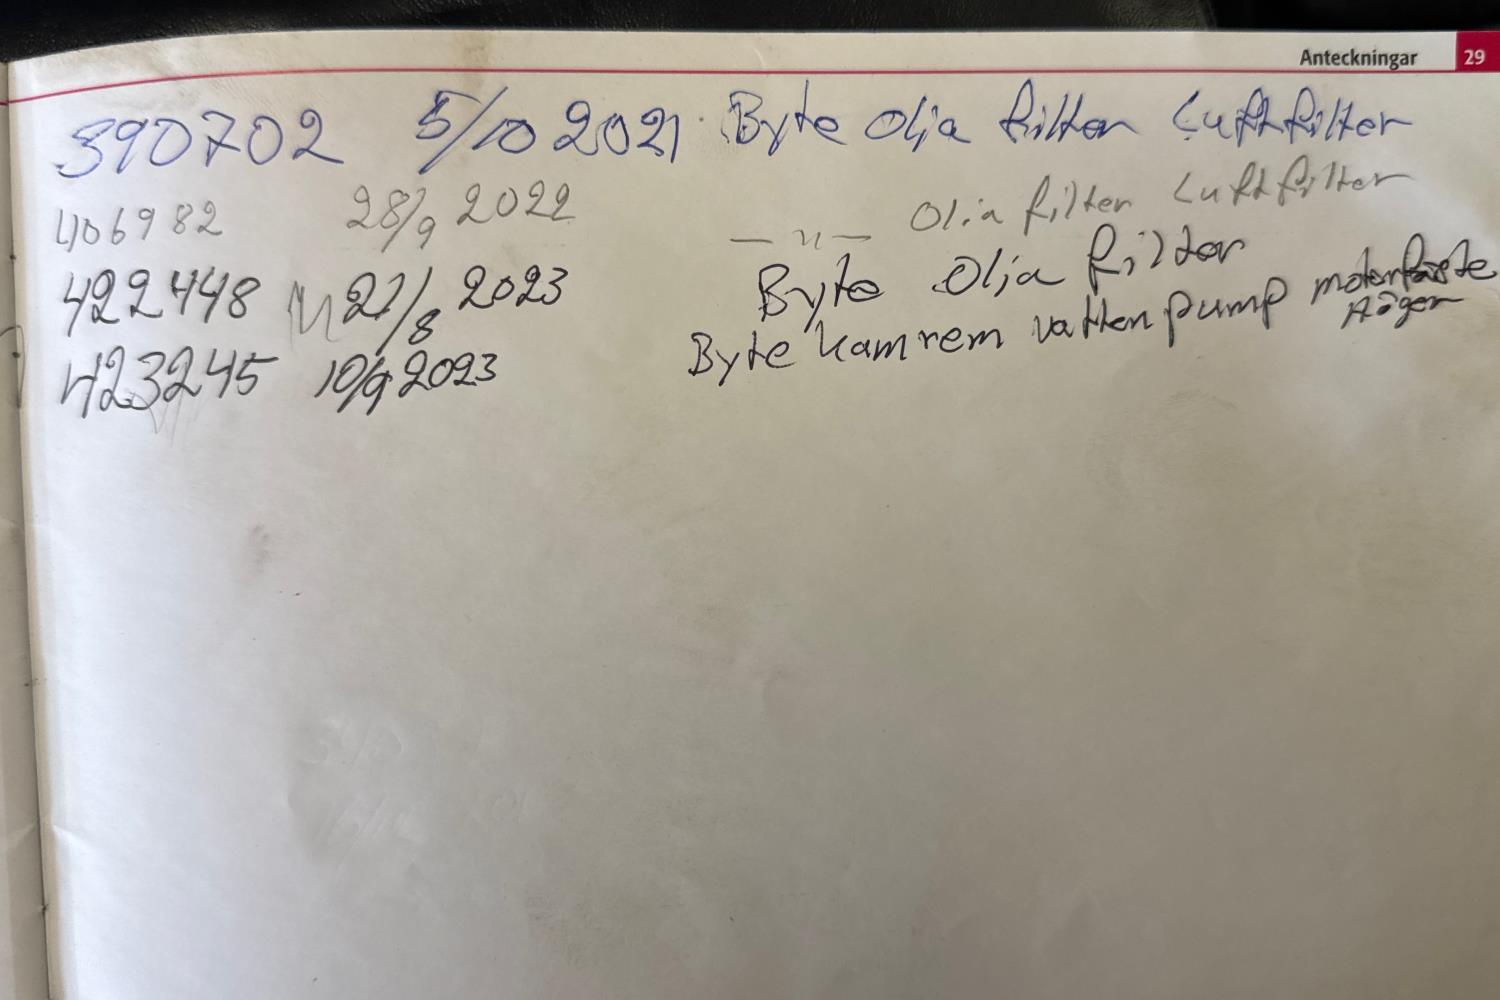 Anteckningar 29
390702 5/10 2021 Byte Olja filter Luftfilter
406982 28/9 2022 — " — Olja filter Luftfilter
422448 21/8 2023 Byte Olja filter
423245 10/9 2023 Byte kamrem vatten pump motorfäste
Höger